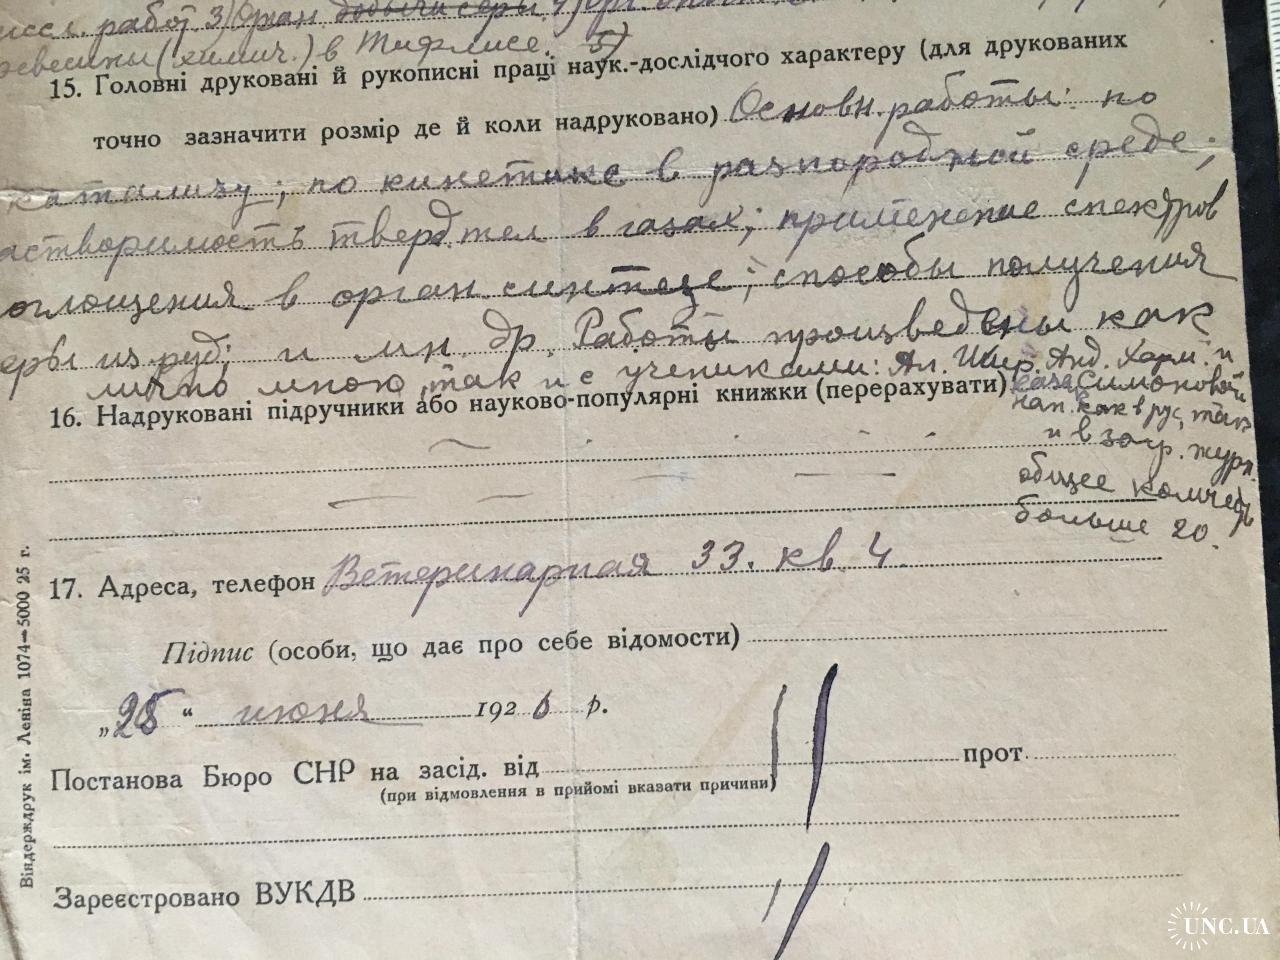 иссл. работ. 3) Орган. добычи серы 4)
(химич.) в Тифлисе. 5)
15. Головні друковані й рукописні праці наук.-дослідчого характеру (для друкованих
точно зазначити розмір де й коли надруковано) Основн. работы: по
катализу; по кинетике в разнородной среде;
астворимость тверд. тел в газах; применение спектров
оглощения в орган. синтезе; способы получения
еры из руд; и мн. др. Работы произведены как
лично мною, так и с учениками: Ал. Шир. Анд. Харм. и
Симоновой
16. Надруковані підручники або науково-популярні книжки (перерахувати)
нап. как в рус, так
и в загр. журн.
общее количеств
больше 20.
17. Адреса, телефон Ветеринарная 33. кв. 4.
Підпис (особи, що дає про себе відомости)
„25“ июня 1926 р.
Постанова Бюро СНР на засід. від прот.
(при відмовлення в прийомі вказати причини)
Зареєстровано ВУКДВ
Віндерждрук ім. Леніна 1074—5000 25 г.
UNC.UA